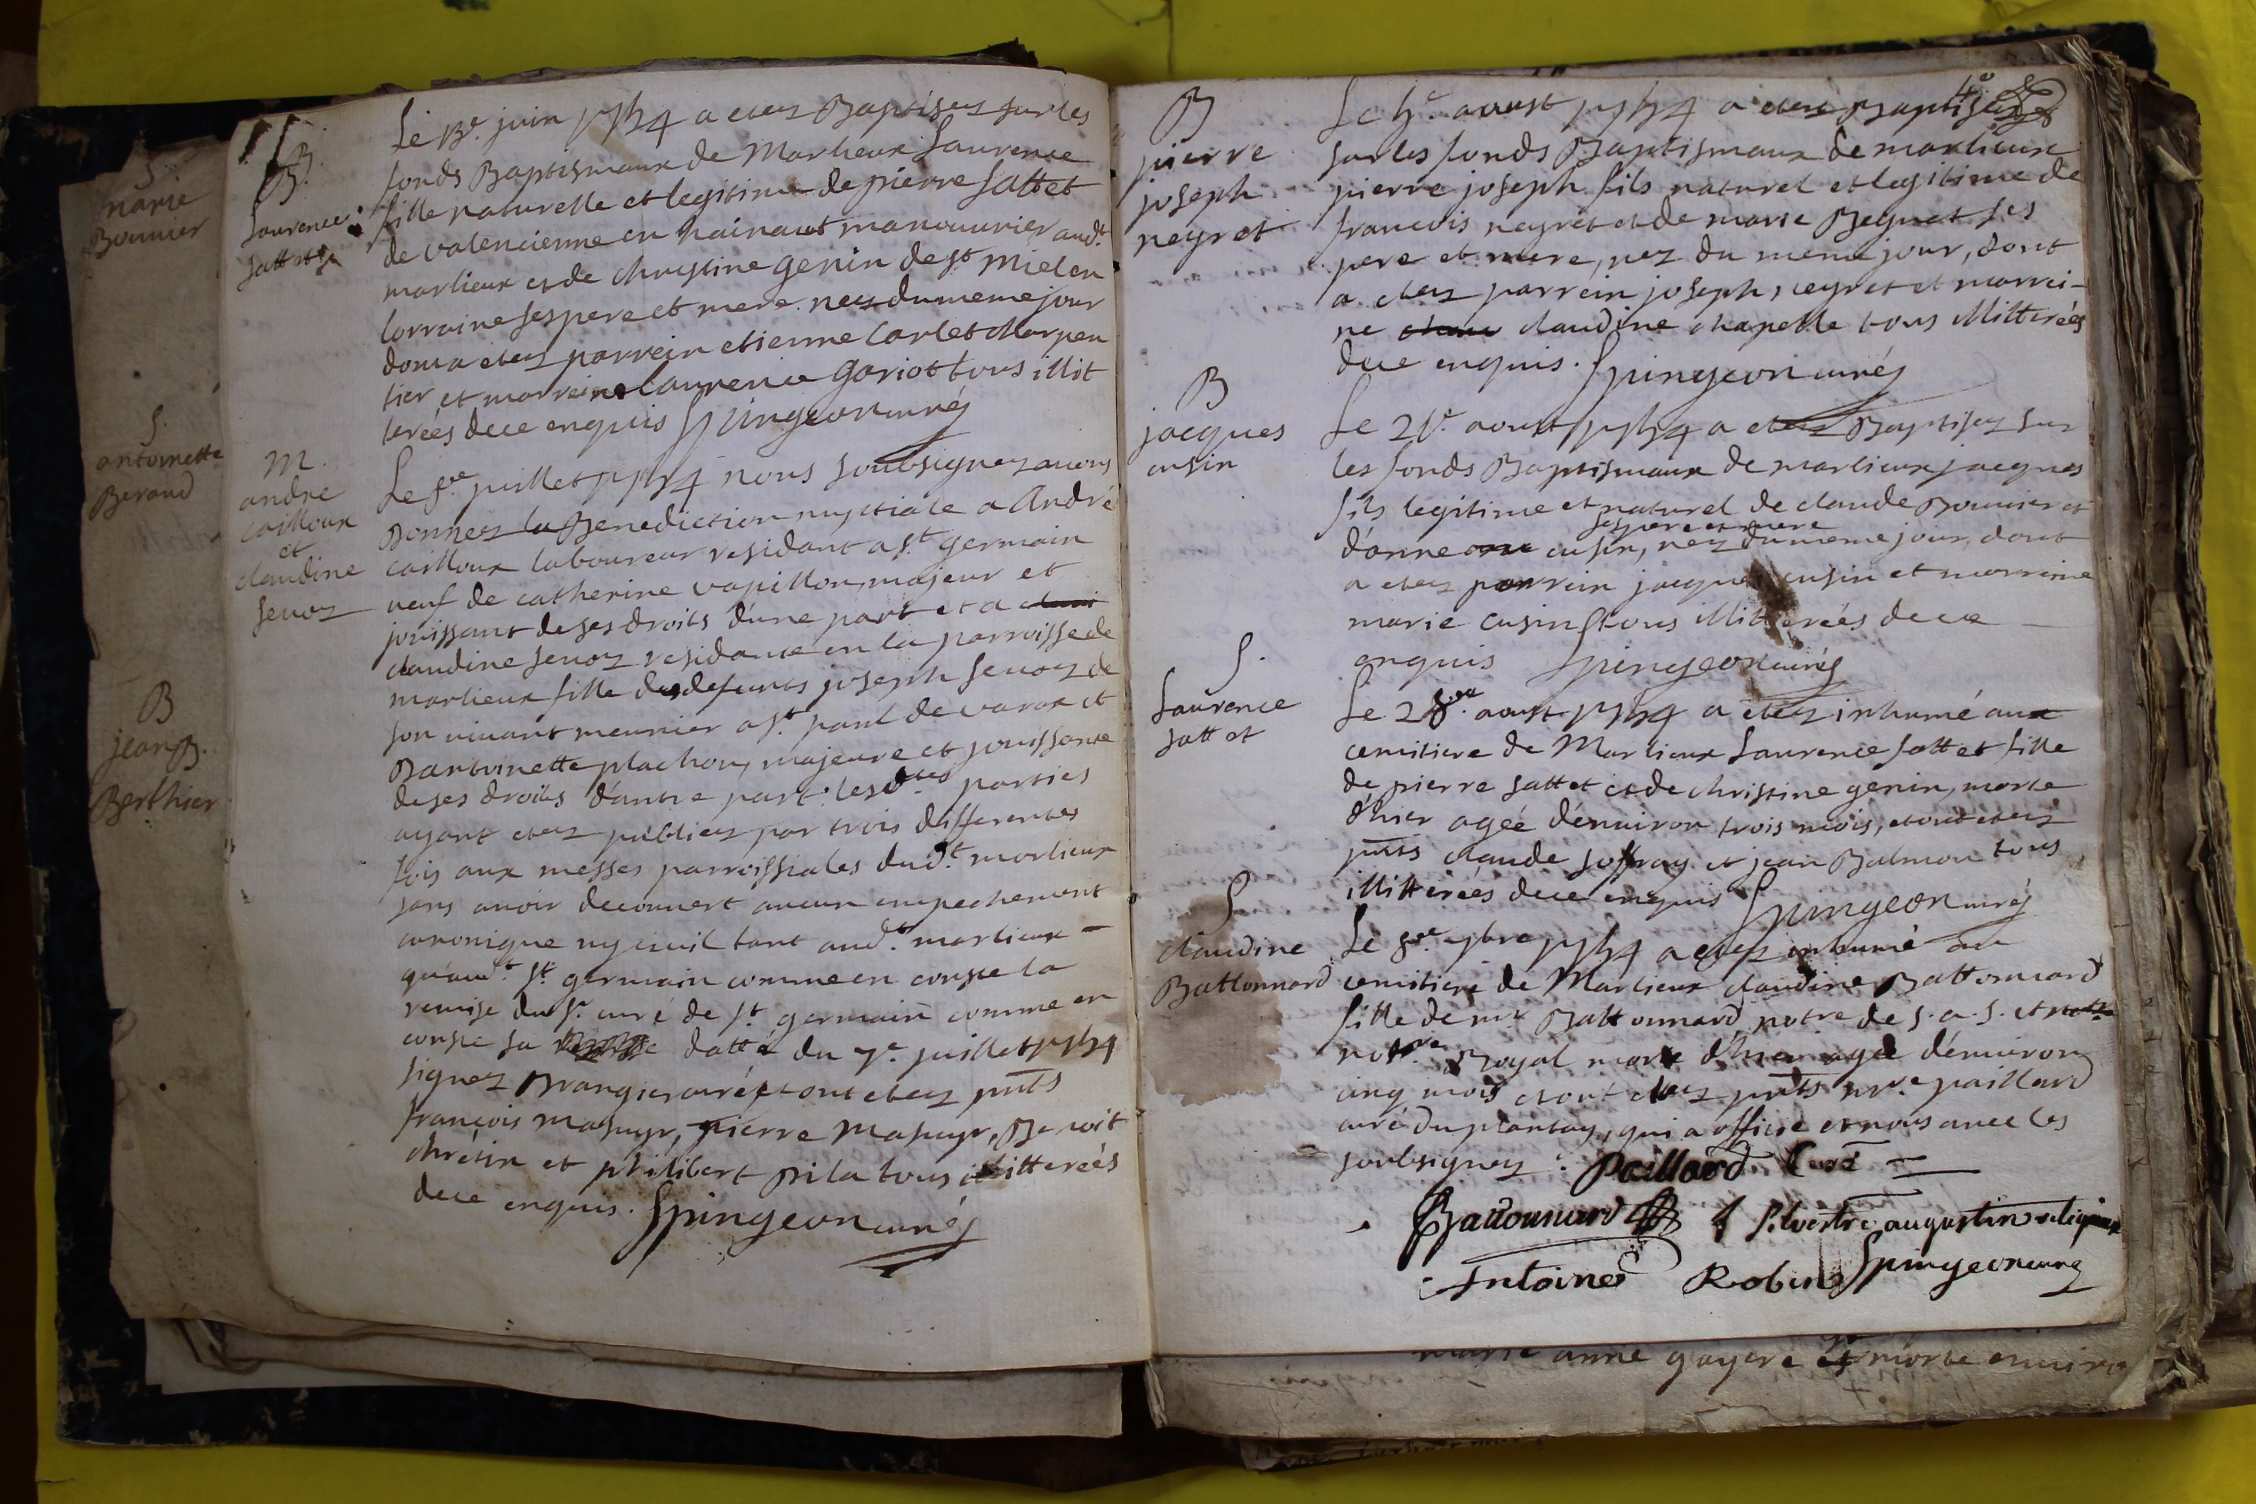 S.
marie
Bouuier
S.
antoinette
Beraud
B
jean B.
Berthier
B.
Laurence
sattet
Le 13e. juin 1754 a etez Baptisez sur les
fonds Baptismaux de Marlieux Laurence
fille naturelle et legitime de pierre sattet
de valencienne en hainaut manouurier audt.
marlieux et de christine genin de st miel en
lorraine ses pere et mere. nez du meme jour
dont a etez parrein etienne Carlet charpen
tier et marreine laurence goriot tous illit
terées de ce enquis Spingeon curéz
M.
andre
cailloux
et
claudine
seuoz
Le 8e. juillet 1754 nous soubsignez auons
Donnez la Benediction nuptiale a André
cailloux laboureur residant a st. germain
ueuf de catherine vapillon, majeur et
jouissant de ses droits d'une part et a
claudine seuoz residante en la parroisse de
marlieux fille des defunts joseph seuoz de
son uiuant meunier a st. paul de varax et
D'antoinette plachon, majeure et jouissante
de ses droits d'autre part. lesdtes parties
ayant etez publiez par trois differentes
fois aux messes parroissiales dudt. marlieux
sans auoir decouuert aucun empechement
canonique ny ciuil tant audt. marlieux
qu'audt. st. germain comme en conste la
remise du sr. curé de st. germain comme en
conste sa dattée du 7e. juillet 1754
signez Brangier curé et ont etez pnts
françois mahuyr, pierre mahuyr, Benoit
chrétin et philibert pila tous illitterées
de ce enquis. Spingeon curéz
B
pierre
joseph
neyret
Le 5e. aoust 1754 a etez Baptisez
sur les fonds Baptismaux de marlieux
pierre joseph fils naturel et legitime de
francois neyret et de marie Beguet ses
pere et mere, nez du meme jour, dont
a etez parrein joseph neyret et marrei-
ne claudine chapelle tous illitterées
de ce enquis. Spingeon curéz
B
jacques
cusin
Le 21e. aoust 1754 a etez Baptisez sur
les fonds Baptismaux de marlieux jacques
fils legitime et naturel de claude Bouuier et
ses pere et mere
d'anne cusin, nez du meme jour, dont
a etez parrein jacques cusin et marreine
marie cusin tous illitterées de ce
enquis Spingeon curéz
S.
Laurence
sattet
Le 28e. aoust 1754 a etez inhumé aux
cemitiere de Marlieux Laurence sattet fille
de pierre sattet et de christine genin, morte
d'hier agée d'enuiron trois mois, et ont etez
pnts claude joffray et jean Balmon tous
illitterées de ce enquis Spingeon curéz
S
claudine
Battonnard
Le 8e 7bre 1754 a etez inhumé au
cemitiere de Marlieux claudine Battonnard
fille de mr. Battonnard notre de s. a. s. et
notre Royal morte d'hier agée d'enuiron
cinq mois et ont etez pnts mre. paillard
curé du plantay, qui a officié et nous auec les
soubsignez. Paillard Curé
Battonnard f Siluestre augustin religieux
Antoine Robin Spingeon curéz
marie anne gayere morte enuiron